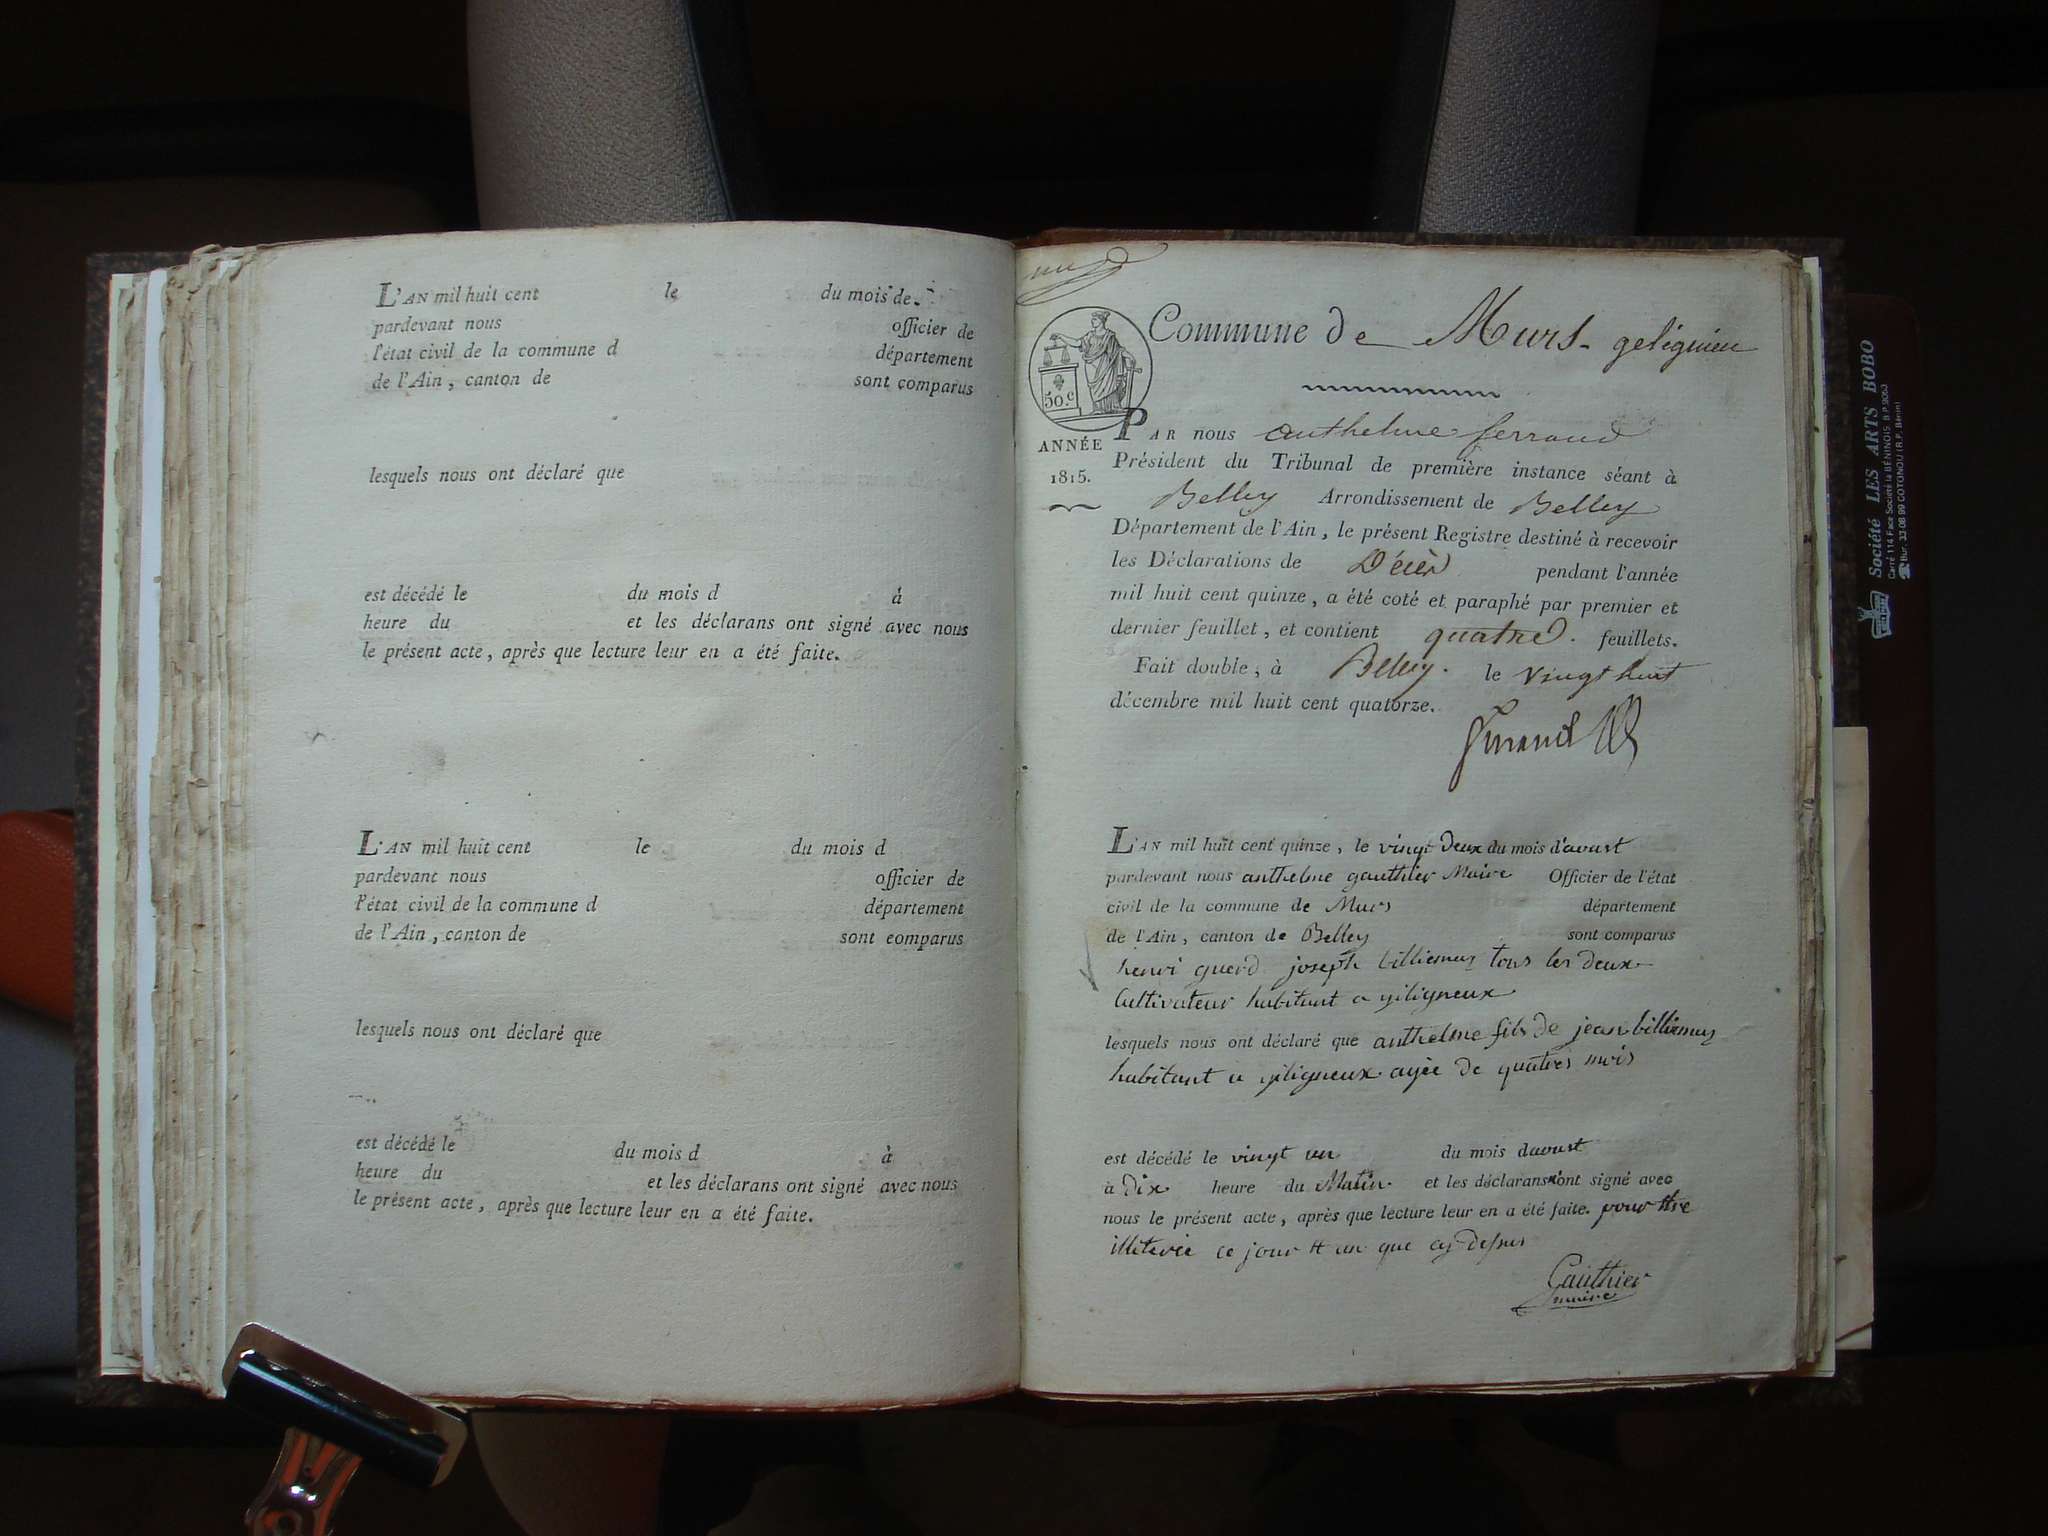 L'AN mil huit cent le du mois de
pardevant nous officier de
l'état civil de la commune d département
de l'Ain, canton de sont comparus
lesquels nous ont déclaré que
est décédé le du mois d à
heure du et les déclarans ont signé avec nous
le présent acte, après que lecture leur en a été faite.
L'AN mil huit cent le du mois d
pardevant nous officier de
l'état civil de la commune d département
de l'Ain, canton de sont comparus
lesquels nous ont déclaré que
est décédé le du mois d à
heure du et les déclarans ont signé avec nous
le présent acte, après que lecture leur en a été faite.
Commune de Murs- gelignieu
50.c
ANNÉE
1815.
PAR nous anthelme ferrand
Président du Tribunal de première instance séant à
Belley Arrondissement de Belley
Département de l'Ain, le présent Registre destiné à recevoir
les Déclarations de Décès pendant l'année
mil huit cent quinze, a été coté et paraphé par premier et
dernier feuillet, et contient quatre. feuillets.
Fait double, à Belley. le vingt huit
décembre mil huit cent quatorze.
L'AN mil huit cent quinze, le vingt deux du mois d'avoust
pardevant nous anthelme gauthier Maire Officier de l'état
civil de la commune de Murs département
de l'Ain, canton de Belley sont comparus
henri guerd joseph billiemaz tous les deux
Cultivateur habitant a giligneux
lesquels nous ont déclaré que anthelme fils de jean billiemaz
habitant a giligneux agée de quatres mois
est décédé le vingt un du mois davoust
à dix heure du Matin et les déclarans n'ont signé avec
nous le présent acte, après que lecture leur en a été faite. pour ttre
illiterée ce jour et an que cy dessus
Gauthier
maire
Société LES ARTS BOBO
Carré 114 Face Société la BÉNINOIS B.P. 9063
Bur. 33 08 99 COTONOU (R.P. Bénin)